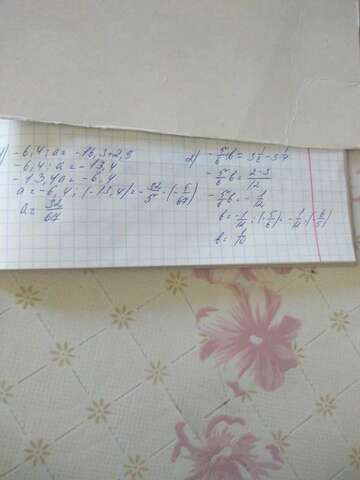 1) -6,4 : a = -16,3+2,9
-6,4 : a = -13,4
-13,4a = -6,4
a = -6,4 : (-13,4) = -32/5 · (-5/67)
a = 32/67
2) -5/6 b =
-5/6 b = 2-3/12
-5/6 b = -1/12
b = -1/12 : (-5/6) = -1/12 · (-6/5)
b = 1/10